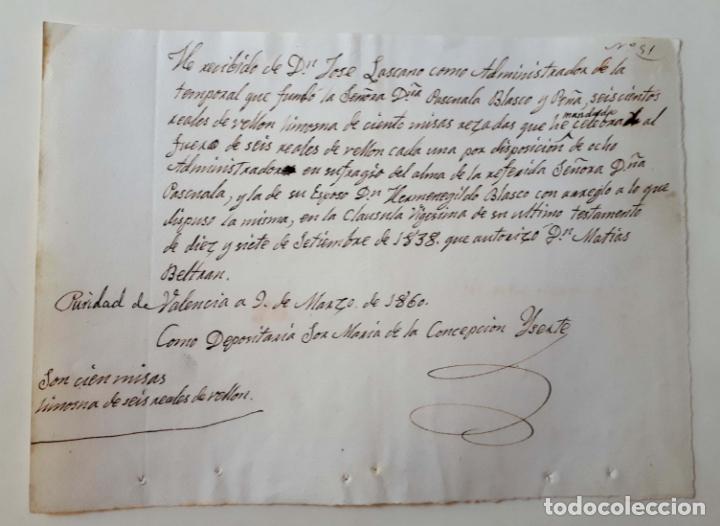 Nº 31
He recibido de Dn. José Lascano como Administrador de la
temporal que fundó la Señora Dña Pascuala Blasco y Peña, seiscientos
reales de vellon limosna de ciento misas rezadas que he mandado celebrar al
fuero de seis reales de vellon cada una por disposicion de echo
Administrador en sufragio del alma de la referida Señora Dña
Pascuala, y la de su Esposo Dn. Hermenegildo Blasco con arreglo a lo que
dispuso la misma, en la Clausula Vigesima de su ultimo testamento
de diez y siete de Setiembre de 1838. que autorizo Dn. Matias
Beltran.
Puridad de Valencia a 9. de Marzo. de 1860.
Como Depositaria Sor Maria de la Concepcion Yserte
Son cien misas
limosna de seis reales de vellon.
todocoleccion.net